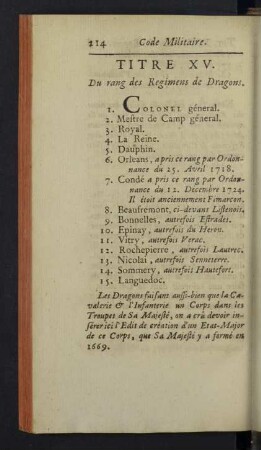 214 Code Militaire.
TITRE XV.
Du rang des Regimens de Dragons.
1. COLONEL général.
2. Mestre de Camp général.
3. Royal.
4. La Reine.
5. Dauphin.
6. Orleans, a pris ce rang par Ordon-
nance du 25. Avril 1718.
7. Condé a pris ce rang par Ordon-
nance du 12. Decembre 1724.
Il étoit anciennement Fimarcon.
8. Beaufremont, ci-devant Listenois.
9. Bonnelles, autrefois Estrades.
10. Epinay, autrefois du Heron.
11. Vitry, autrefois Verac.
12. Rochepierre, autrefois Lautrec.
13. Nicolai, autrefois Senneterre.
14. Sommery, autrefois Hautefort.
15. Languedoc.
Les Dragons faisant aussi-bien que la Ca-
valerie & l'Infanterie un Corps dans les
Troupes de Sa Majesté, on a crû devoir in-
sérer ici l'Edit de création d'un Etat-Major
de ce Corps, que Sa Majesté y a formé en
1669.